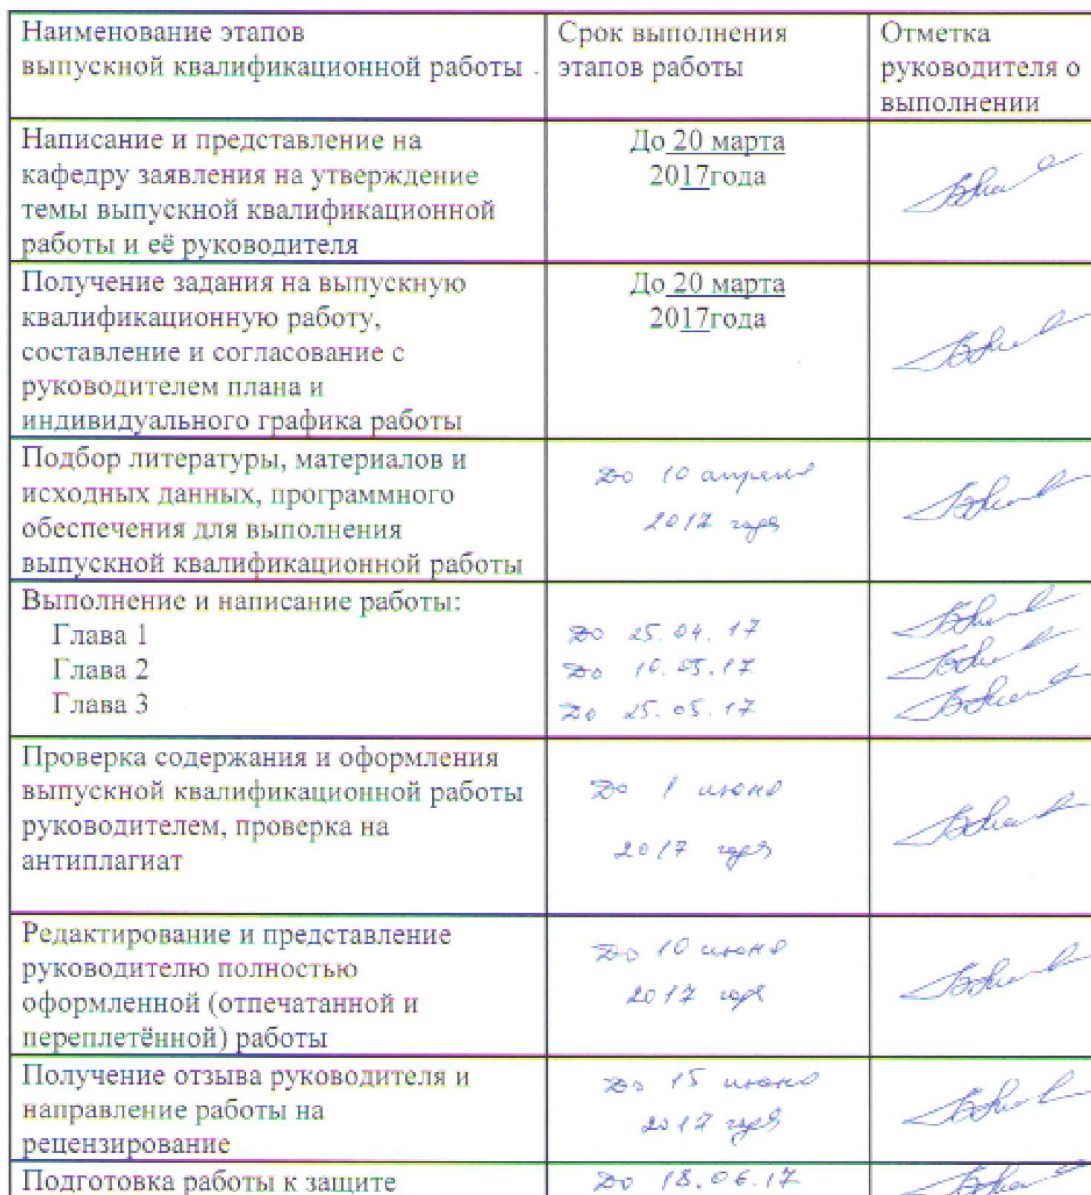 Наименование этапов
выпускной квалификационной работы
Срок выполнения
этапов работы
Отметка
руководителя о
выполнении
Написание и представление на
кафедру заявления на утверждение
темы выпускной квалификационной
работы и её руководителя
До 20 марта
2017года
Получение задания на выпускную
квалификационную работу,
составление и согласование с
руководителем плана и
индивидуального графика работы
До 20 марта
2017года
Подбор литературы, материалов и
исходных данных, программного
обеспечения для выполнения
выпускной квалификационной работы
До 10 апреля
2017 года
Выполнение и написание работы:
Глава 1
До 25.04.17
Глава 2
До 10.05.17
Глава 3
До 25.05.17
Проверка содержания и оформления
выпускной квалификационной работы
руководителем, проверка на
антиплагиат
До 1 июня
2017 года
Редактирование и представление
руководителю полностью
оформленной (отпечатанной и
переплетённой) работы
До 10 июня
2017 года
Получение отзыва руководителя и
направление работы на
рецензирование
До 15 июня
2017 года
Подготовка работы к защите
До 18.06.17